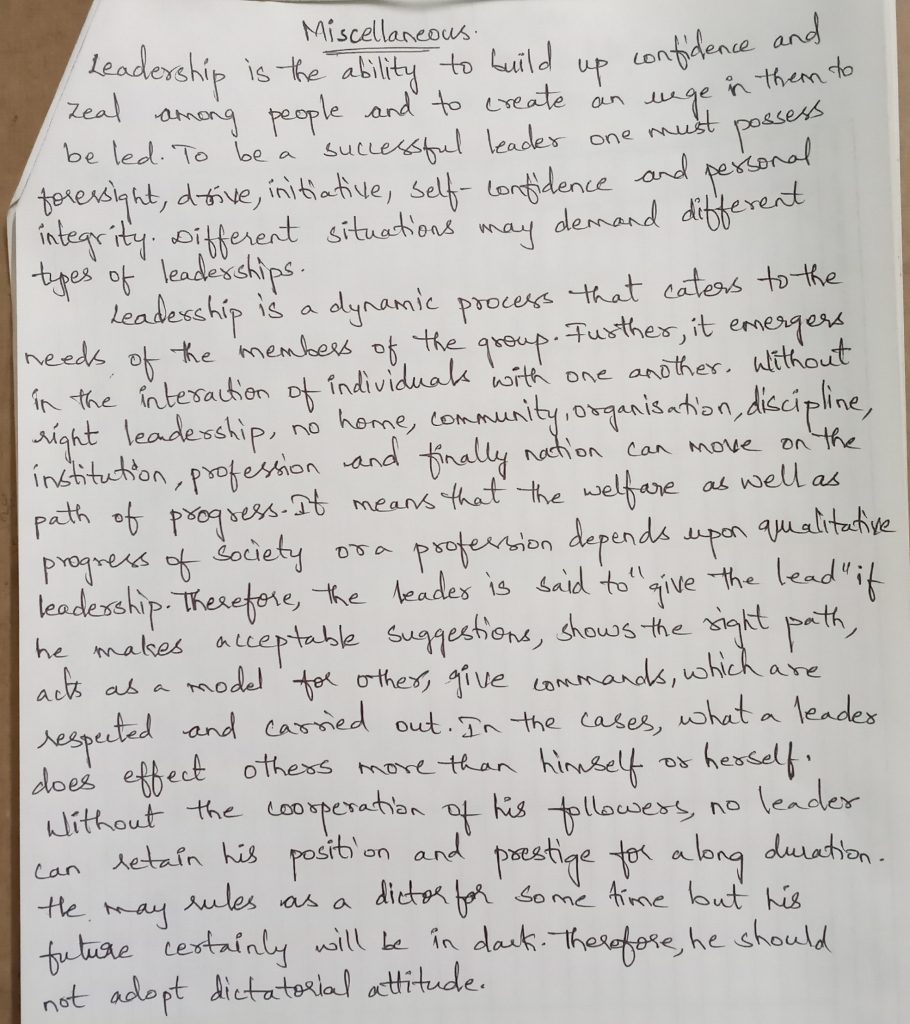 Miscellaneous.
Leadership is the ability to build up confidence and
zeal among people and to create an urge in them to
be led. To be a successful leader one must possess
foresight, drive, initiative, self-confidence and personal
integrity. Different situations may demand different
types of leaderships.
Leadership is a dynamic process that caters to the
needs of the members of the group. Further, it emergers
in the interaction of individuals with one another. Without
right leadership, no home, community, organisation, discipline,
institution, profession and finally nation can move on the
path of progress. It means that the welfare as well as
progress of society or a profession depends upon qualitative
leadership. Therefore, the leader is said to "give the lead" if
he makes acceptable suggestions, shows the right path,
acts as a model for other, give commands, which are
respected and carried out. In the cases, what a leader
does effect others more than himself or herself.
Without the coorperation of his followers, no leader
can retain his position and prestige for a long duration.
He may rules as a dictor for some time but his
future certainly will be in dark. Therefore, he should
not adopt dictatorial attitude.